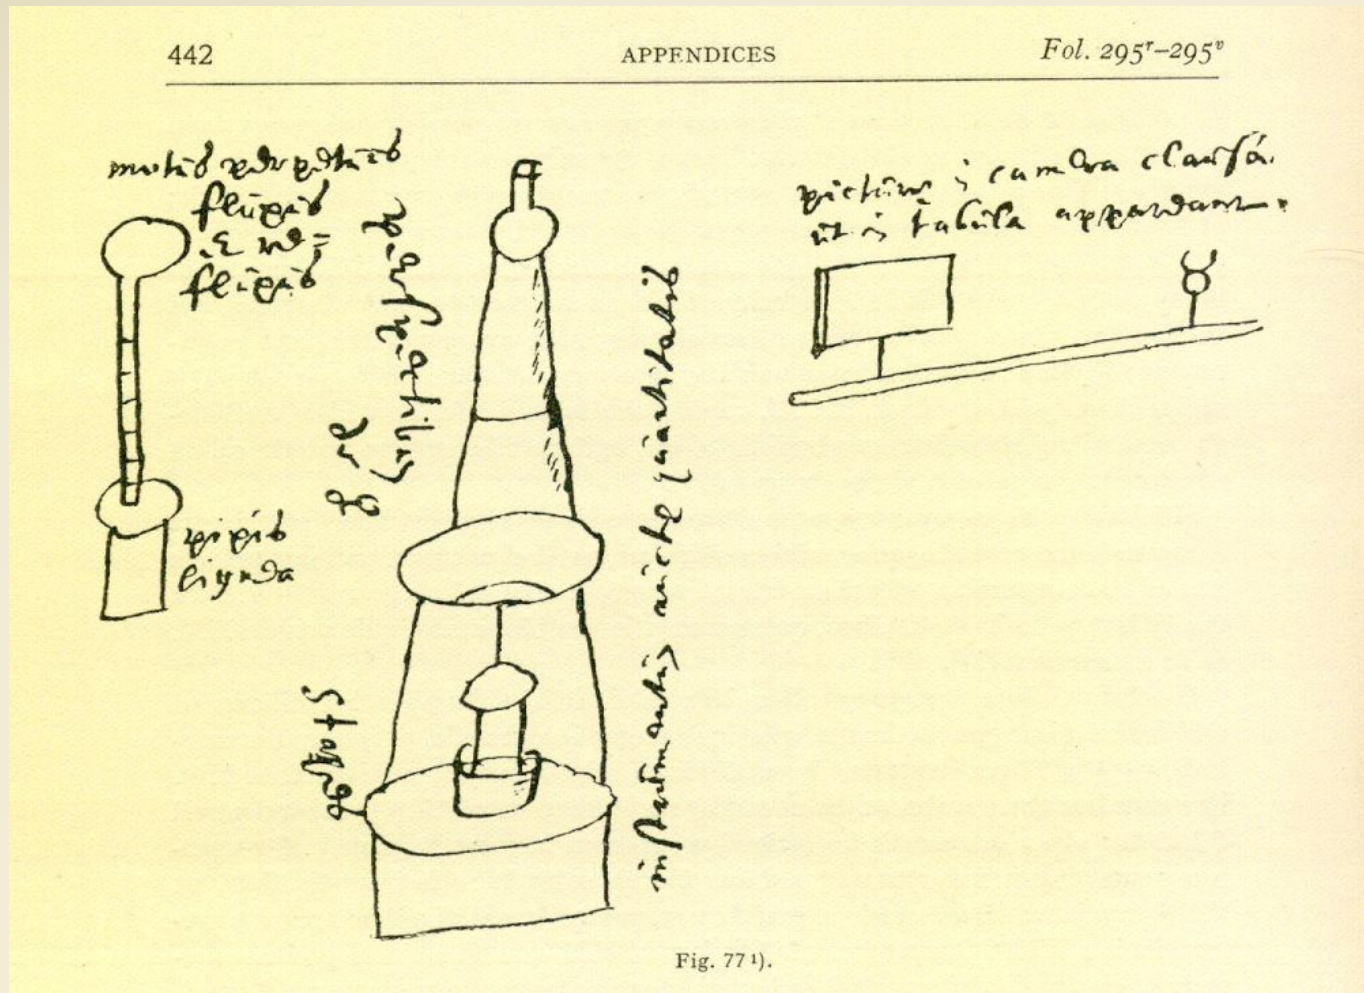 442
APPENDICES
Fol. 295ʳ–295ᵛ
motus perpetuus
fluxus
et re=
fluxus
pixis
lignea
perspectibus
instrumentum
quantitatis
picturae in camera clausa
ut in tabula appareant.
Fig. 77 ¹).